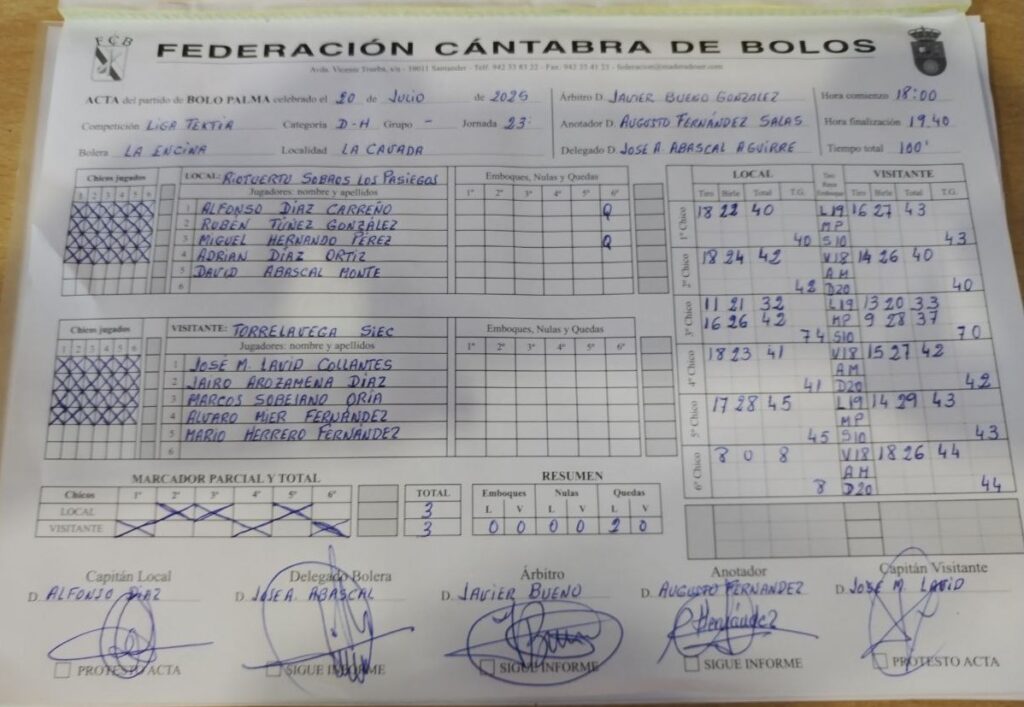 FCB
FEDERACIÓN CÁNTABRA DE BOLOS
Avda. Vicente Trueba, s/n - 39011 Santander - Telf. 942 33 83 22 - Fax. 942 35 41 23 -
ACTA del partido de BOLO PALMA celebrado el 20 de JULIO de 2025
Árbitro D. JAVIER BUENO GONZALEZ
Hora comienzo 18:00
Competición LIGA TEXTIA Categoría D-H Grupo - Jornada 23
Anotador D. AUGUSTO FERNÁNDEZ SALAS
Hora finalización 19.40
Bolera LA ENCINA Localidad LA CAVADA
Delegado D. JOSE A. ABASCAL AGUIRRE
Tiempo total 100'
Chicos jugados
1 2 3 4 5 6
LOCAL: RIOTUERTO SOBAOS LOS PASIEGOS
Jugadores: nombre y apellidos
Emboques, Nulas y Quedas
1º 2º 3º 4º 5º 6º
1 ALFONSO DÍAZ CARREÑO Q
2 RUBÉN TÚÑEZ GONZÁLEZ
3 MIGUEL HERNANDO PÉREZ Q
4 ADRIAN DÍAZ ORTIZ
5 DAVID ABASCAL MONTE
6
Chicos jugados
1 2 3 4 5 6
VISITANTE: TORRELAVEGA SIEC
Jugadores: nombre y apellidos
Emboques, Nulas y Quedas
1º 2º 3º 4º 5º 6º
1 JOSE M. LAVID COLLANTES
2 JAIRO AROZAMENA DÍAZ
3 MARCOS SOBEJANO ORIA
4 ALVARO MIER FERNÁNDEZ
5 MARIO HERRERO FERNÁNDEZ
6
LOCAL VISITANTE
Tiro Birle Total T.G. Tiro Raya Emboque Tiro Birle Total T.G.
1º Chico 18 22 40 L19 16 27 43
MP
40 S10 43
2º Chico 18 24 42 V18 14 26 40
AM
42 D20 40
3º Chico 11 21 32 L19 13 20 33
16 26 42 MP 9 28 37
74 S10 70
4º Chico 18 23 41 V18 15 27 42
AM
41 D20 42
5º Chico 17 28 45 L19 14 29 43
MP
45 S10 43
6º Chico 8 0 8 V18 18 26 44
AM
8 D20 44
MARCADOR PARCIAL Y TOTAL
Chicos 1º 2º 3º 4º 5º 6º TOTAL
LOCAL 3
VISITANTE 3
RESUMEN
Emboques Nulas Quedas
L V L V L V
0 0 0 0 2 0
Capitán Local Delegado Bolera Árbitro Anotador Capitán Visitante
D. ALFONSO DÍAZ D. JOSE A. ABASCAL D. JAVIER BUENO D. AUGUSTO FERNANDEZ D. JOSE M. LAVID
Hernández
PROTESTO ACTA SIGUE INFORME SIGUE INFORME SIGUE INFORME PROTESTO ACTA